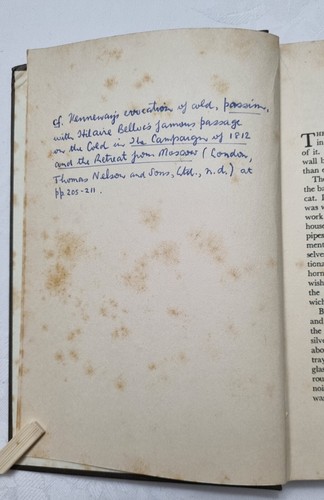 cf. Kennaway's evocation of cold, passim,
with Hilaire Belloc's famous passage
on the Cold in The Campaign of 1812
and the Retreat from Moscow (London,
Thomas Nelson and Sons, Ltd., n.d.) at
pp. 205-211.
TH
in
of it.
wall
than
Th
the b
cat.
was
house
pipes
ment
selve
tiona
horn
wish
the
wich
B
and
the
silve
abo
tray
glas
rou
noi
wa